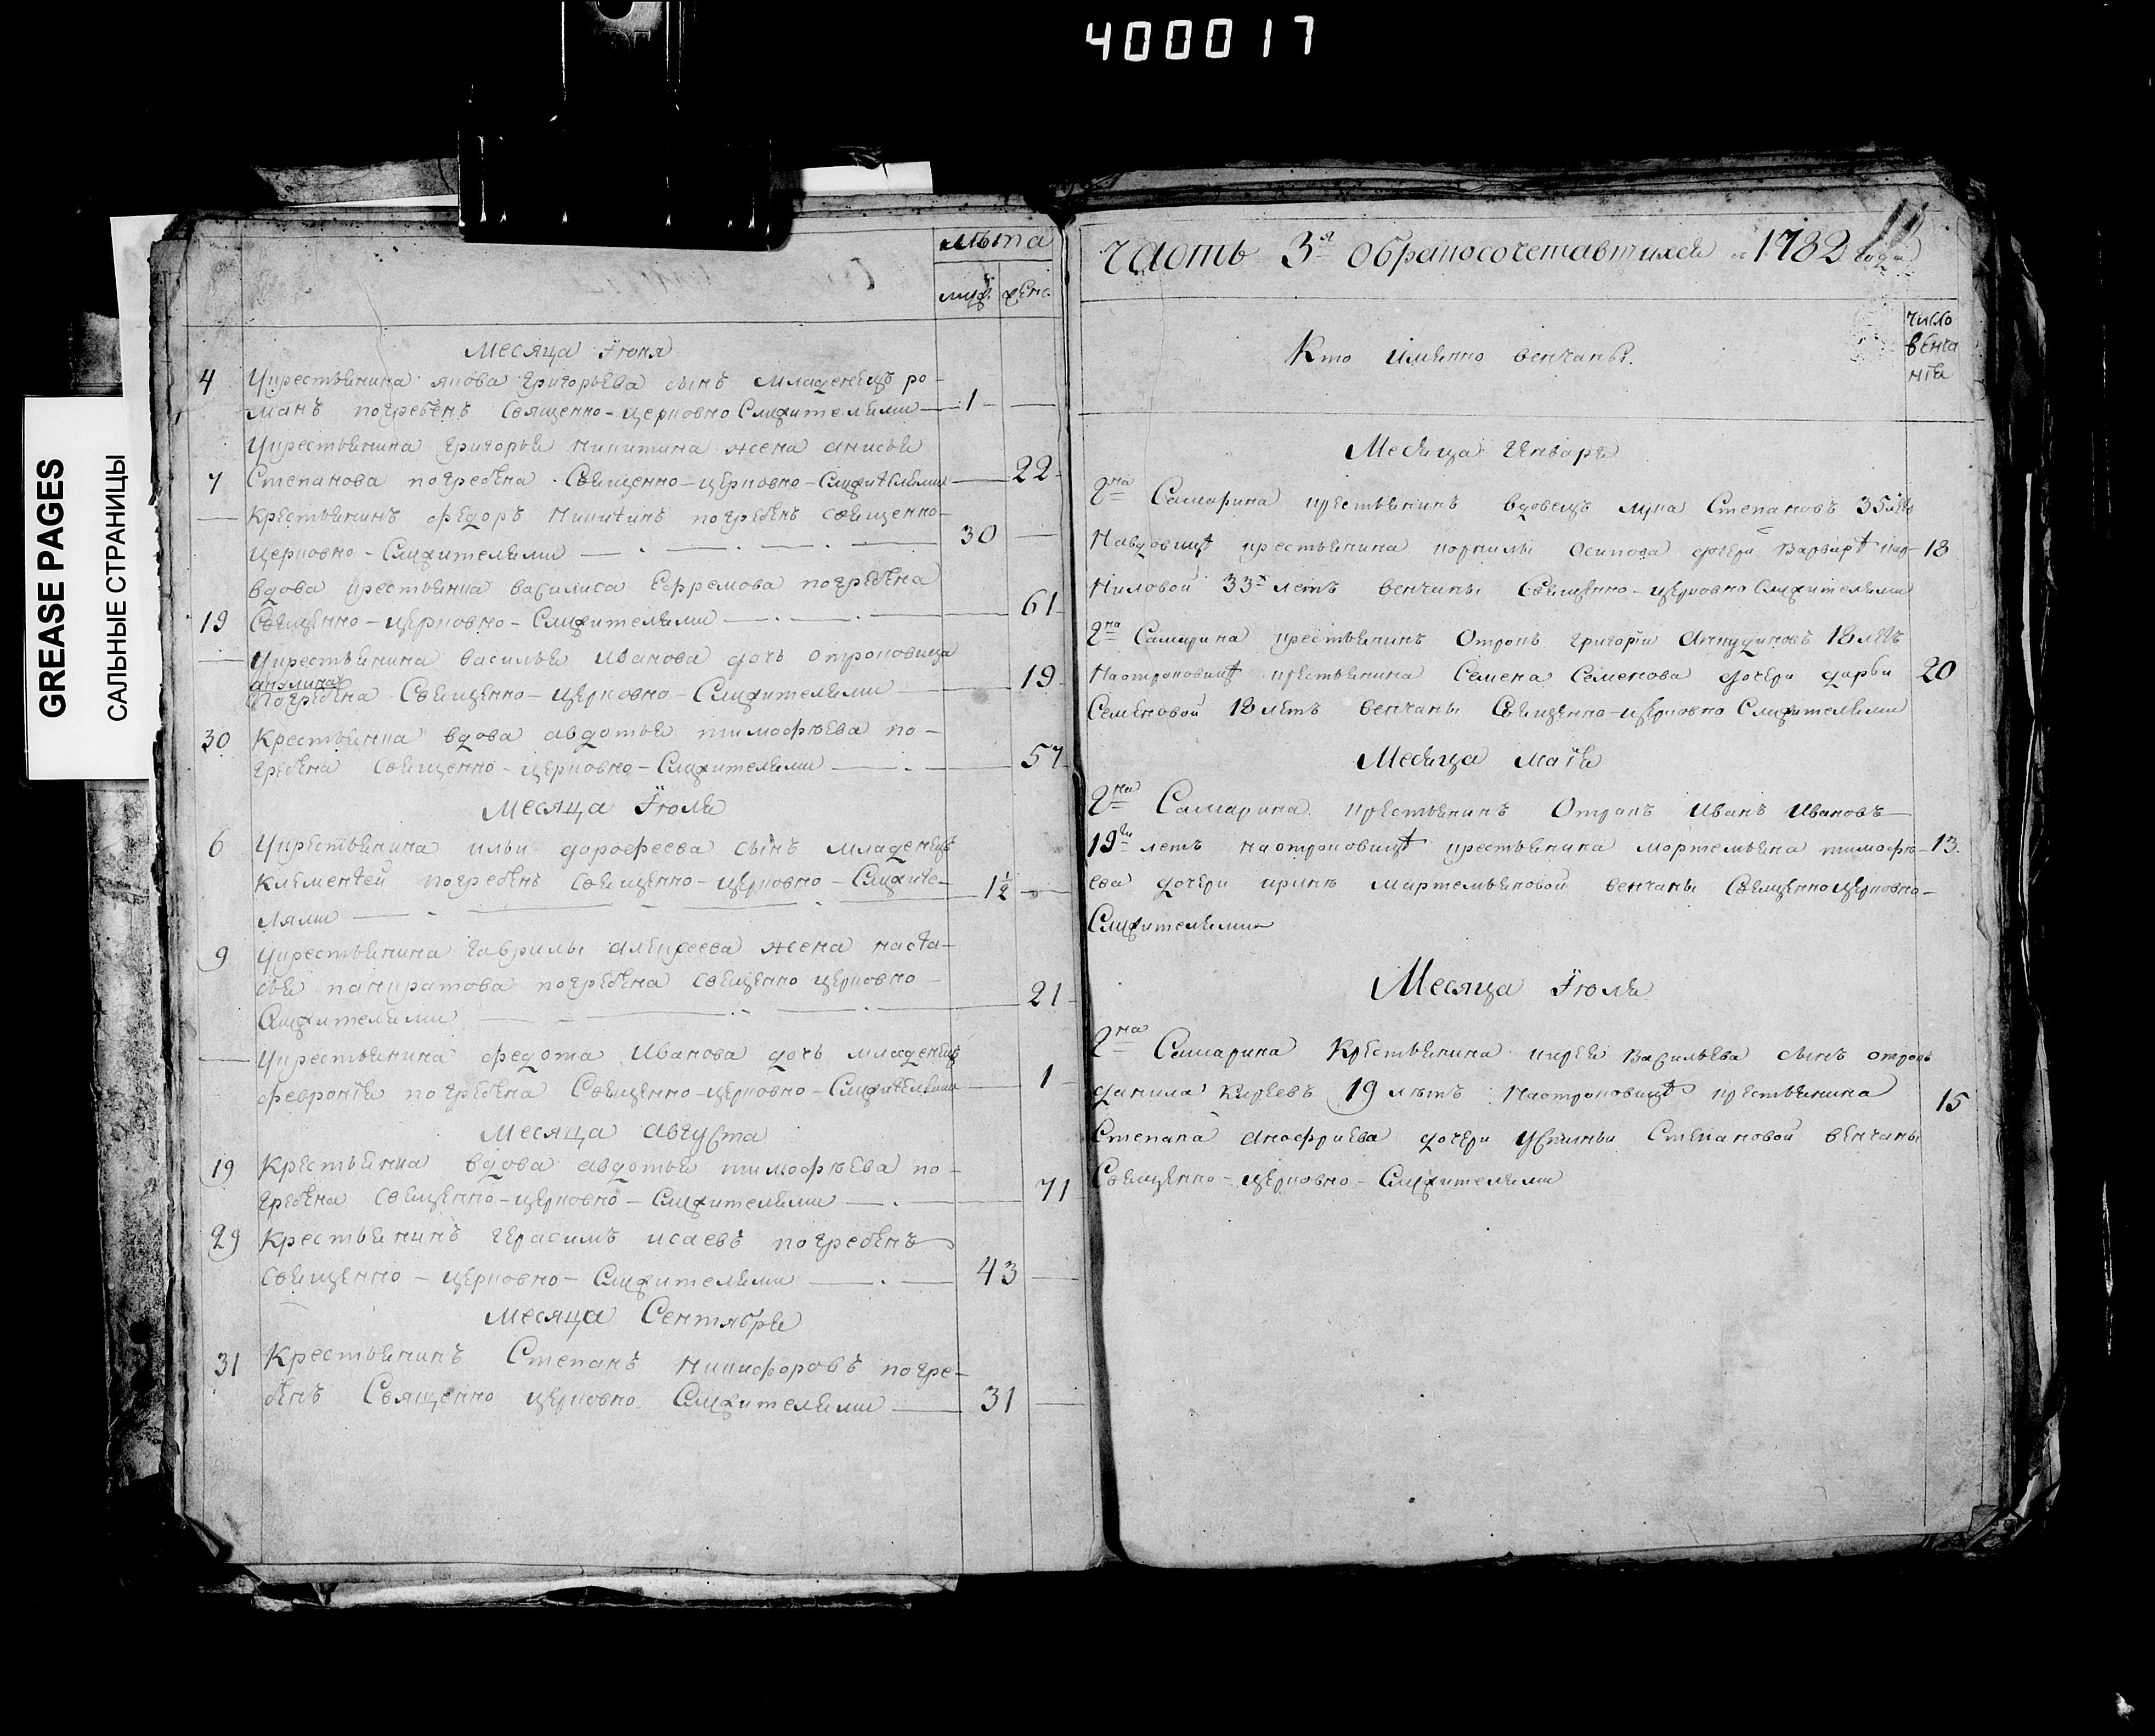 400017
GREASE PAGES
САЛЬНЫЕ СТРАНИЦЫ
лѣта
муж. жен.
Месяца Їюня
4 Укрестьянина якова григорьева сынъ младенецъ ро-
манъ погребенъ священно-церковно служителями 1
Укрестьянина григорья никитина жена анисья
7 Степанова погребена священно-церковно-служителями 22
Крестьянинъ федоръ никитинъ погребенъ священно-
церковно-служителями 30
вдова крестьянка василиса Ефремова погребена
19 священно-церковно-служителями 61
Укрестьянина василья иванова дочь отроковица
акулина
погребена священно-церковно-служителями 19
30 Крестьянка вдова авдотья тимофѣева по-
гребена священно-церковно-служителями 57
Месяца Їюля
6 Укрестьянина ильи дорофеева сынъ младенецъ
Климентей погребенъ священно-церковно-служите-
лями 1½
9 Укрестьянина гаврилы алексеева жена наста-
сья панкратова погребена священно церковно
служителями 21
Укрестьянина федота иванова дочь младенецъ
февронїя погребена священно-церковно-служителями 1
Месяца августа
19 Крестьянка вдова авдотья тимофѣева по-
гребена священно-церковно-служителями 71
29 Крестьянинъ герасимъ исаевъ погребенъ
священно-церковно-служителями 43
Месяца Сентября
31 Крестьянинъ Степанъ никифоровъ погре-
бенъ Священно церковно служителями 31
часть 3я обракосочетавшихся 1782 года
Кто имянно венчаны.
число
венча
нїя
Месяца Генваря
2на Самарина крестьянинъ вдовецъ лука Степановъ 35 летъ
Навдовицѣ крестьянина корнилы осипова дочери варварѣ кор- 18
ниловой 33х летъ венчаны священно-церковно служителями
2на Самарина крестьянинъ отрокъ григорїи 18 летъ
Наотроковицѣ крестьянина Семена Семенова дочери дарьи 20
Семеновой 18 летъ венчаны священно-церковно служителями
Месяца маїя
2на Самарина крестьянинъ отрокъ иванъ ивановъ
19ти летъ наотроковицѣ крестьянина мортемьяна тимофѣ- 13
ева дочери иринѣ мартемьяновой венчаны священноцерковно-
служителями
Месяца Їюля
2на Самарина Крестьянина кирея васильева сынъ отрокъ
данила киреевъ 19 лѣтъ наотроковицѣ крестьянина 15
Степана анофриева дочери устиньи Степановой венчаны
священно-церковно-служителями